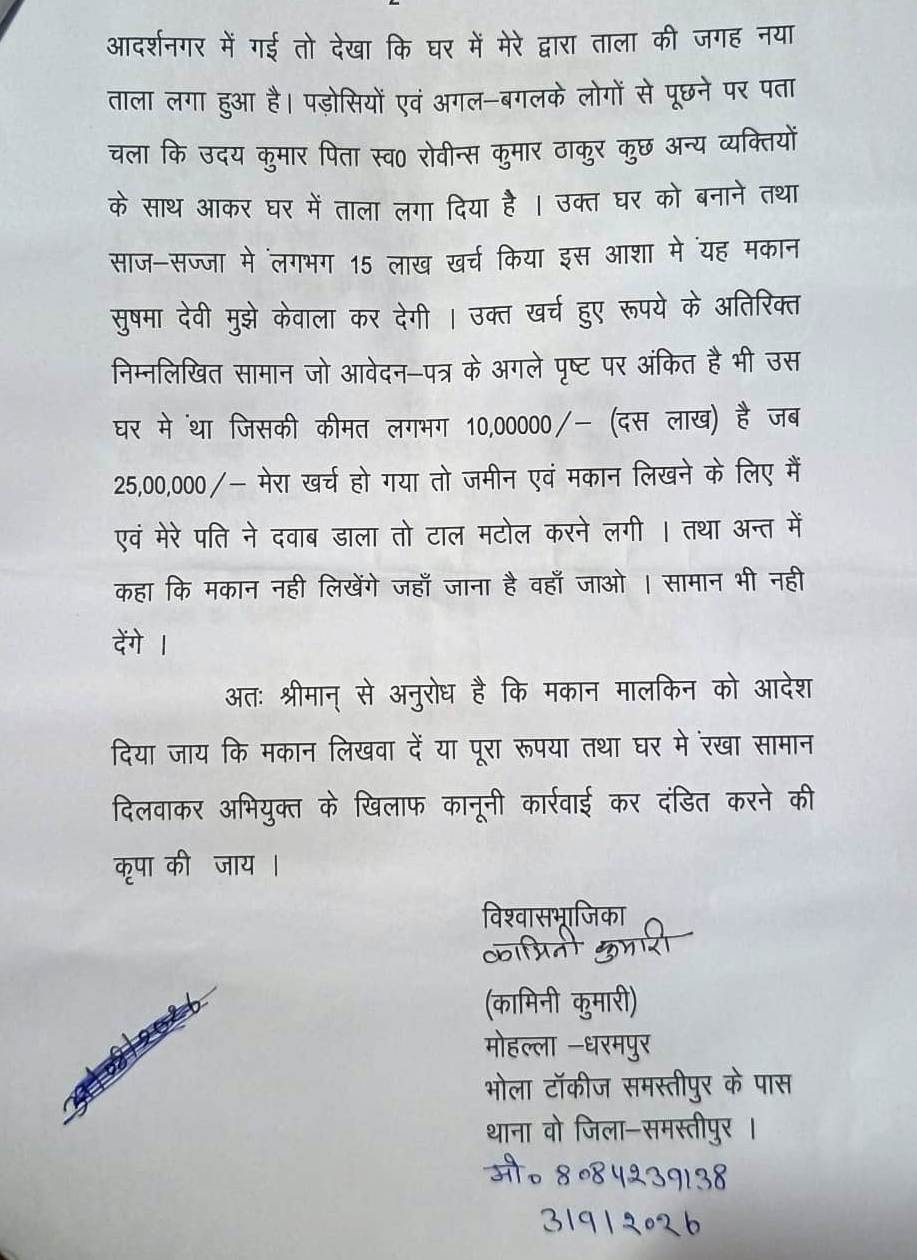 आदर्शनगर में गई तो देखा कि घर में मेरे द्वारा ताला की जगह नया
ताला लगा हुआ है। पड़ोसियों एवं अगल–बगलके लोगों से पूछने पर पता
चला कि उदय कुमार पिता स्व० रोवीन्स कुमार ठाकुर कुछ अन्य व्यक्तियों
के साथ आकर घर में ताला लगा दिया है । उक्त घर को बनाने तथा
साज–सज्जा मे लगभग 15 लाख खर्च किया इस आशा मे यह मकान
सुषमा देवी मुझे केवाला कर देगी । उक्त खर्च हुए रूपये के अतिरिक्त
निम्नलिखित सामान जो आवेदन–पत्र के अगले पृष्ट पर अंकित है भी उस
घर मे था जिसकी कीमत लगभग 10,00000/– (दस लाख) है जब
25,00,000/– मेरा खर्च हो गया तो जमीन एवं मकान लिखने के लिए मैं
एवं मेरे पति ने दवाब डाला तो टाल मटोल करने लगी । तथा अन्त में
कहा कि मकान नही लिखेंगे जहाँ जाना है वहाँ जाओ । सामान भी नही
देंगे ।
अतः श्रीमान् से अनुरोध है कि मकान मालकिन को आदेश
दिया जाय कि मकान लिखवा दें या पूरा रूपया तथा घर मे रखा सामान
दिलवाकर अभियुक्त के खिलाफ कानूनी कार्रवाई कर दंडित करने की
कृपा की जाय ।
विश्वासभाजिका
कामिनी कुमारी
(कामिनी कुमारी)
मोहल्ला –धरमपुर
भोला टॉकीज समस्तीपुर के पास
थाना वो जिला–समस्तीपुर ।
मो० 8084239138
31912026